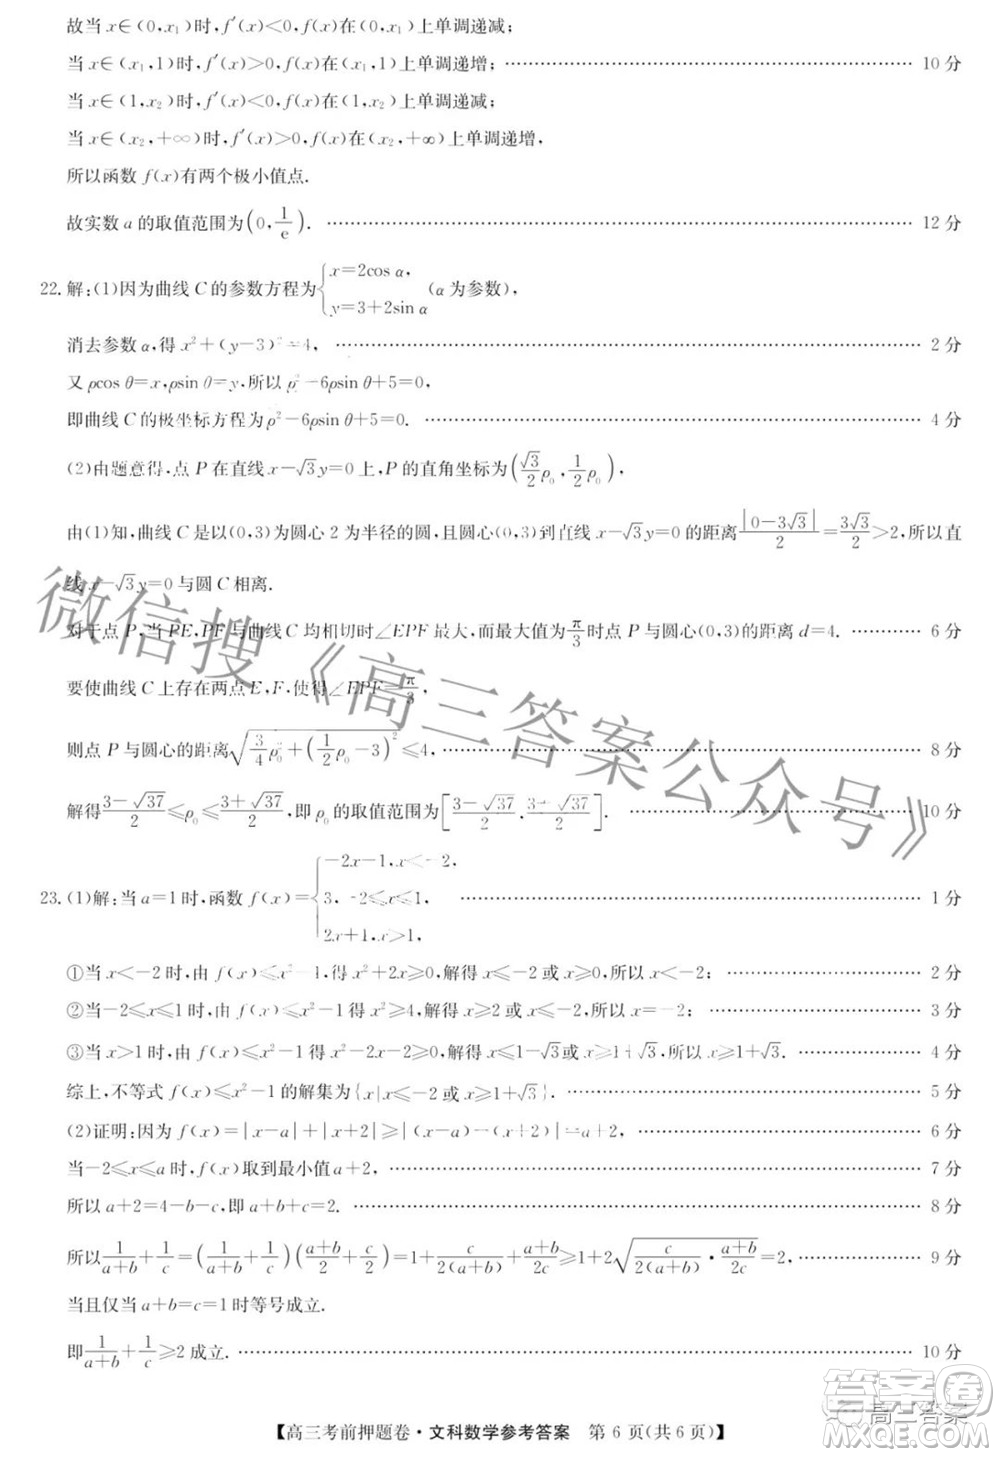 故当 x∈(0,x₁)时,f′(x)<0,f(x)在(0,x₁)上单调递减;
当 x∈(x₁,1)时,f′(x)>0,f(x)在(x₁,1)上单调递增; ……10 分
当 x∈(1,x₂)时,f′(x)<0,f(x)在(1,x₂)上单调递减;
当 x∈(x₂,+∞)时,f′(x)>0,f(x)在(x₂,+∞)上单调递增,
所以函数 f(x)有两个极小值点.
故实数 a 的取值范围为(0,1/e). ……12 分
22.解:(1)因为曲线 C 的参数方程为{x=2cos α, y=3+2sin α (α 为参数),
消去参数 α,得 x²+(y−3)²=4, ……2 分
又 ρcos θ=x,ρsin θ=y,所以 ρ²−6ρsin θ+5=0,
即曲线 C 的极坐标方程为 ρ²−6ρsin θ+5=0. ……4 分
(2)由题意得,点 P 在直线 x−√3y=0 上,P 的直角坐标为(√3/2 ρ₀, 1/2 ρ₀),
由(1)知,曲线 C 是以(0,3)为圆心 2 为半径的圆,且圆心(0,3)到直线 x−√3y=0 的距离|0−3√3|/2=3√3/2>2,所以直
线 x−√3y=0 与圆 C 相离.
对于点 P,当 PE,PF 与曲线 C 均相切时∠EPF 最大,而最大值为π/3时点 P 与圆心(0,3)的距离 d=4. ……6 分
要使曲线 C 上存在两点 E,F,使得∠EPF=π/3,
则点 P 与圆心的距离√(3/4 ρ₀²+(1/2 ρ₀−3)²)≤4, ……8 分
解得(3−√37)/2≤ρ₀≤(3+√37)/2,即 ρ₀ 的取值范围为[(3−√37)/2,(3+√37)/2]. ……10 分
23.(1)解:当 a=1 时,函数 f(x)={−2x−1,x<−2, 3,−2≤x≤1, 2x+1,x>1, ……1 分
①当 x<−2 时,由 f(x)≤x²−1,得 x²+2x≥0,解得 x≤−2 或 x≥0,所以 x<−2; ……2 分
②当−2≤x≤1 时,由 f(x)≤x²−1 得 x²≥4,解得 x≥2 或 x≤−2,所以 x=−2; ……3 分
③当 x>1 时,由 f(x)≤x²−1 得 x²−2x−2≥0,解得 x≤1−√3或 x≥1+√3,所以 x≥1+√3. ……4 分
综上,不等式 f(x)≤x²−1 的解集为{x|x≤−2 或 x≥1+√3}. ……5 分
(2)证明:因为 f(x)=|x−a|+|x+2|≥|(x−a)−(x+2)|=a+2, ……6 分
当−2≤x≤a 时,f(x)取到最小值 a+2, ……7 分
所以 a+2=4−b−c,即 a+b+c=2. ……8 分
所以1/(a+b)+1/c=(1/(a+b)+1/c)((a+b)/2+c/2)=1+c/(2(a+b))+(a+b)/2c≥1+2√(c/(2(a+b))·(a+b)/2c)=2, ……9 分
当且仅当 a+b=c=1 时等号成立.
即1/(a+b)+1/c≥2 成立. ……10 分
【高三考前押题卷·文科数学参考答案 第 6 页(共 6 页)】
微信搜《高三答案公众号》
答案卷
高三答案